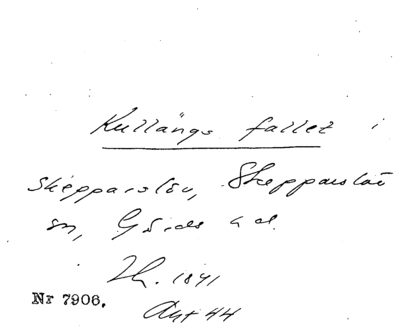 Kullängs fallet i
Skepparslöv, Skepparslöv
sn, Gärds hd.
Th. 1841
Nr 7906.
Akt 44